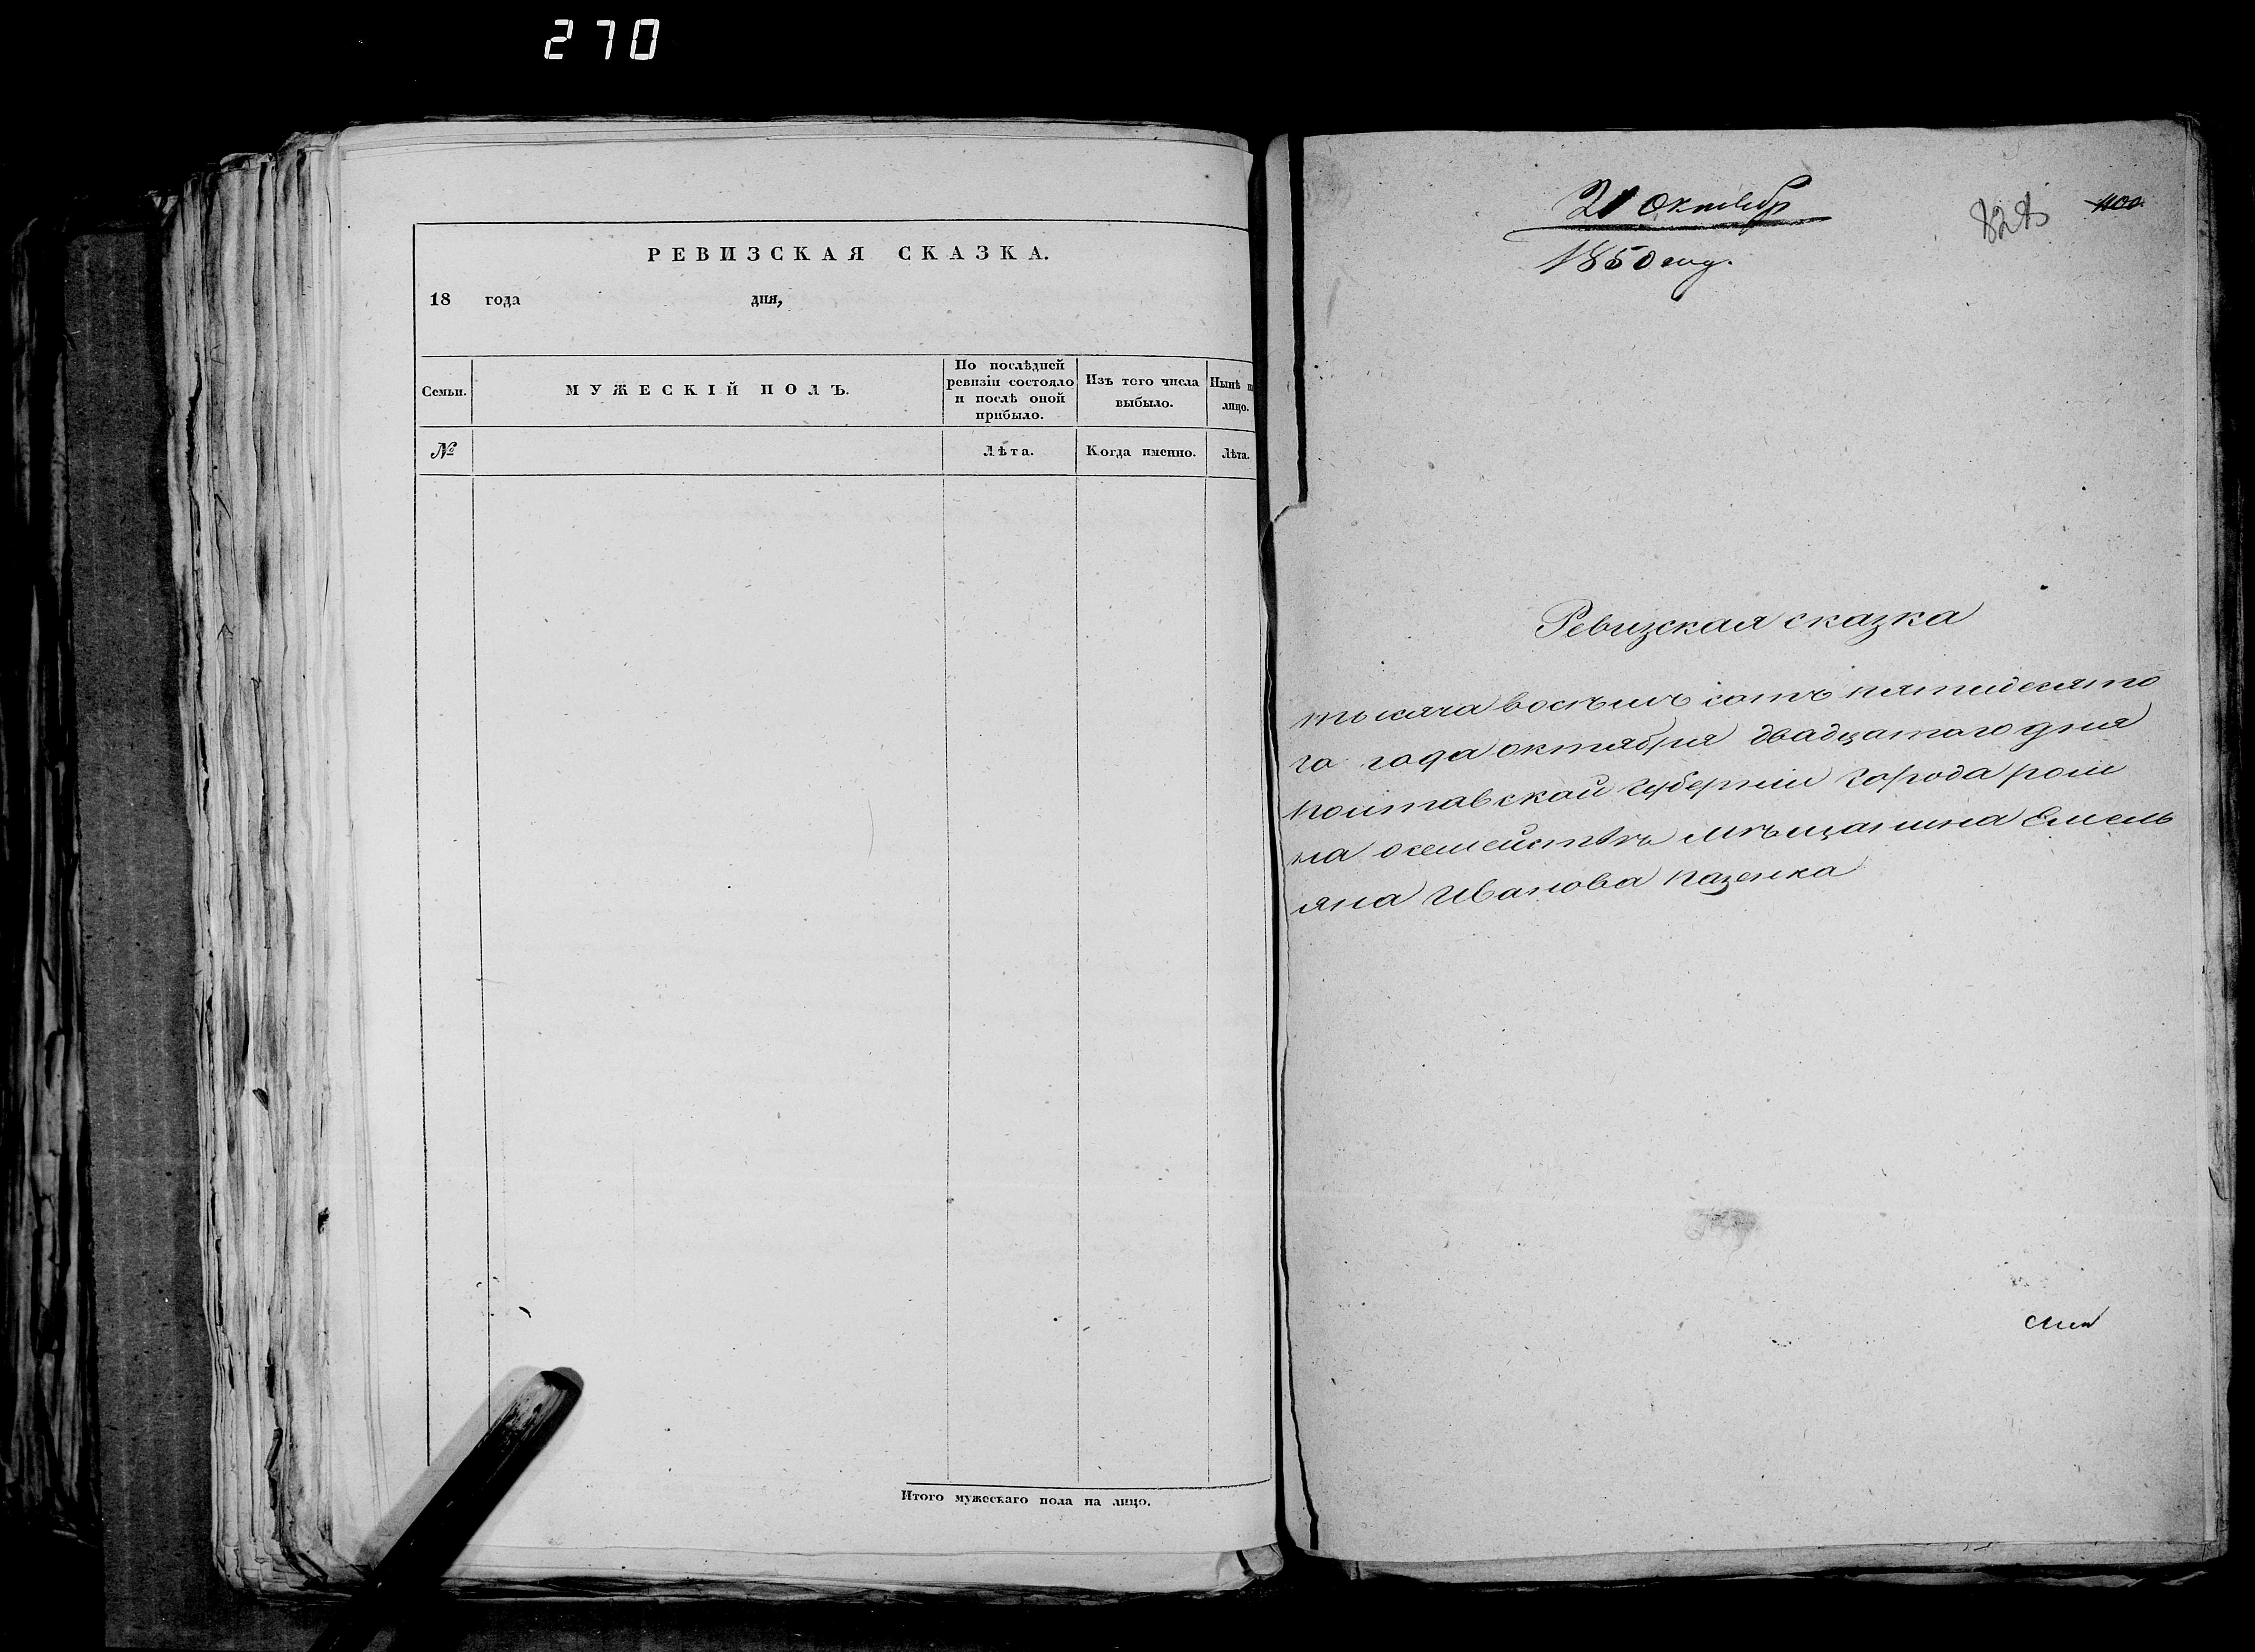 270
РЕВИЗСКАЯ СКАЗКА.
18 года дня,
Семьи.
МУЖЕСКІЙ ПОЛЪ.
По послѣдней
ревизіи состояло
и послѣ оной
прибыло.
Изъ того числа
выбыло.
Нынѣ
лицо.
№
Лѣта.
Когда именно.
Лѣта.
Итого мужескаго пола на лицо.
21 Октябр
1850 год.
828
400
Ревизская сказка
тысяча восъмъ сотъ пятидесято
го года октября двадцатого дня
полтавской губерніи города ром
на осемействѣ мѣщанина Емель
яна Иванова пазенка